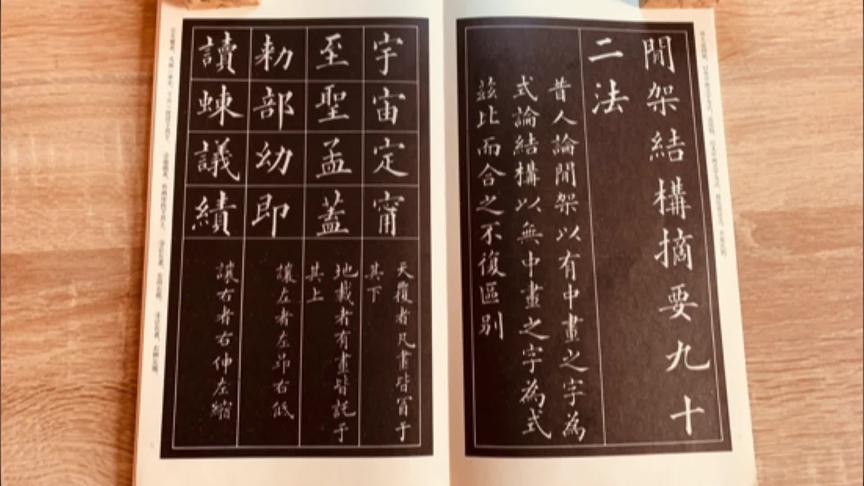 間架結構摘要九十
二法
昔人論間架以有中畫之字為
式論結構以無中畫之字為式
茲比而合之不復區别
宇宙定甯
天覆者凡畫皆冒于
其下
至聖孟蓋
地載者有畫皆託于
其上
勑部幼即
讓左者左昂右低
讀蝀議績
讓右者右伸左縮